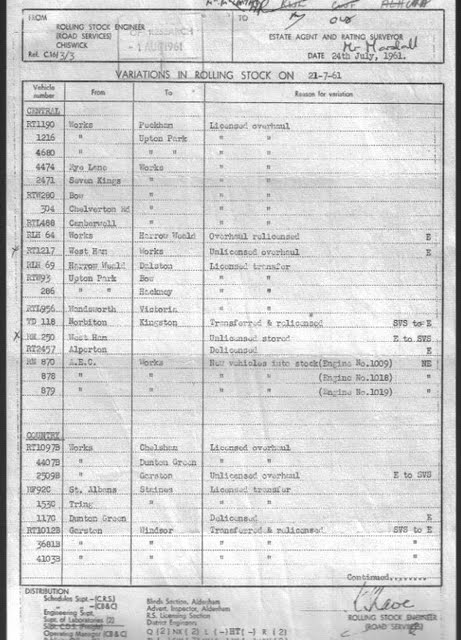 FROM
ROLLING STOCK ENGINEER
(ROAD SERVICES)
CHISWICK
Ref. C.16/3/3
1961
TO
ESTATE AGENT AND RATING SURVEYOR
Mr Marshall
DATE 24th July, 1961.
VARIATIONS IN ROLLING STOCK ON 21-7-61
Vehicle number From To Reason for variation
CENTRAL
RT1190 Works Peckham Licensed overhaul
1216 " Upton Park " "
4680 " " " " "
4474 Rye Lane Works " "
2471 Seven Kings " " "
RTW280 Bow " " "
304 Chelverton Rd " " "
RTL488 Camberwell " " "
RLH 64 Works Harrow Weald Overhaul relicensed E
RT1217 West Ham Works Unlicensed overhaul E
RLH 69 Harrow Weald Dalston Licensed transfer
RTW93 Upton Park Bow " "
286 " " Hackney " "
RTL956 Wandsworth Victoria " "
TD 118 Norbiton Kingston Transferred & relicensed SVS to E
X RM 250 West Ham Unlicensed stored E to SVS
RT2457 Alperton Delicensed E
RM 870 A.E.C. Works New vehicles into stock (Engine No.1009) NE
878 " " " (Engine No.1018) "
879 " " " (Engine No.1019) "
COUNTRY
RT1097B Works Chelsham Licensed overhaul
4407B " Dunton Green " "
2509B " Garston Unlicensed overhaul E to SVS
St. Albans Staines Licensed transfer
1530 Tring " " "
1170 Dunton Green Delicensed E
RT1012B Garston Windsor Transferred & relicensed SVS to E
3681B " " " " "
4103B " " " " "
Continued........
DISTRIBUTION
Schedules Supt.-(C.R.S.)
" -(CB&C)
Engineering Supt.
Supt. of Laboratories (2)
Operating Manager (CB&C)
Blinds Section, Aldenham
Advert. Inspector, Aldenham
R.S. Licensing Section
District Engineers
ROLLING STOCK ENGINEER
(ROAD SERVICES)